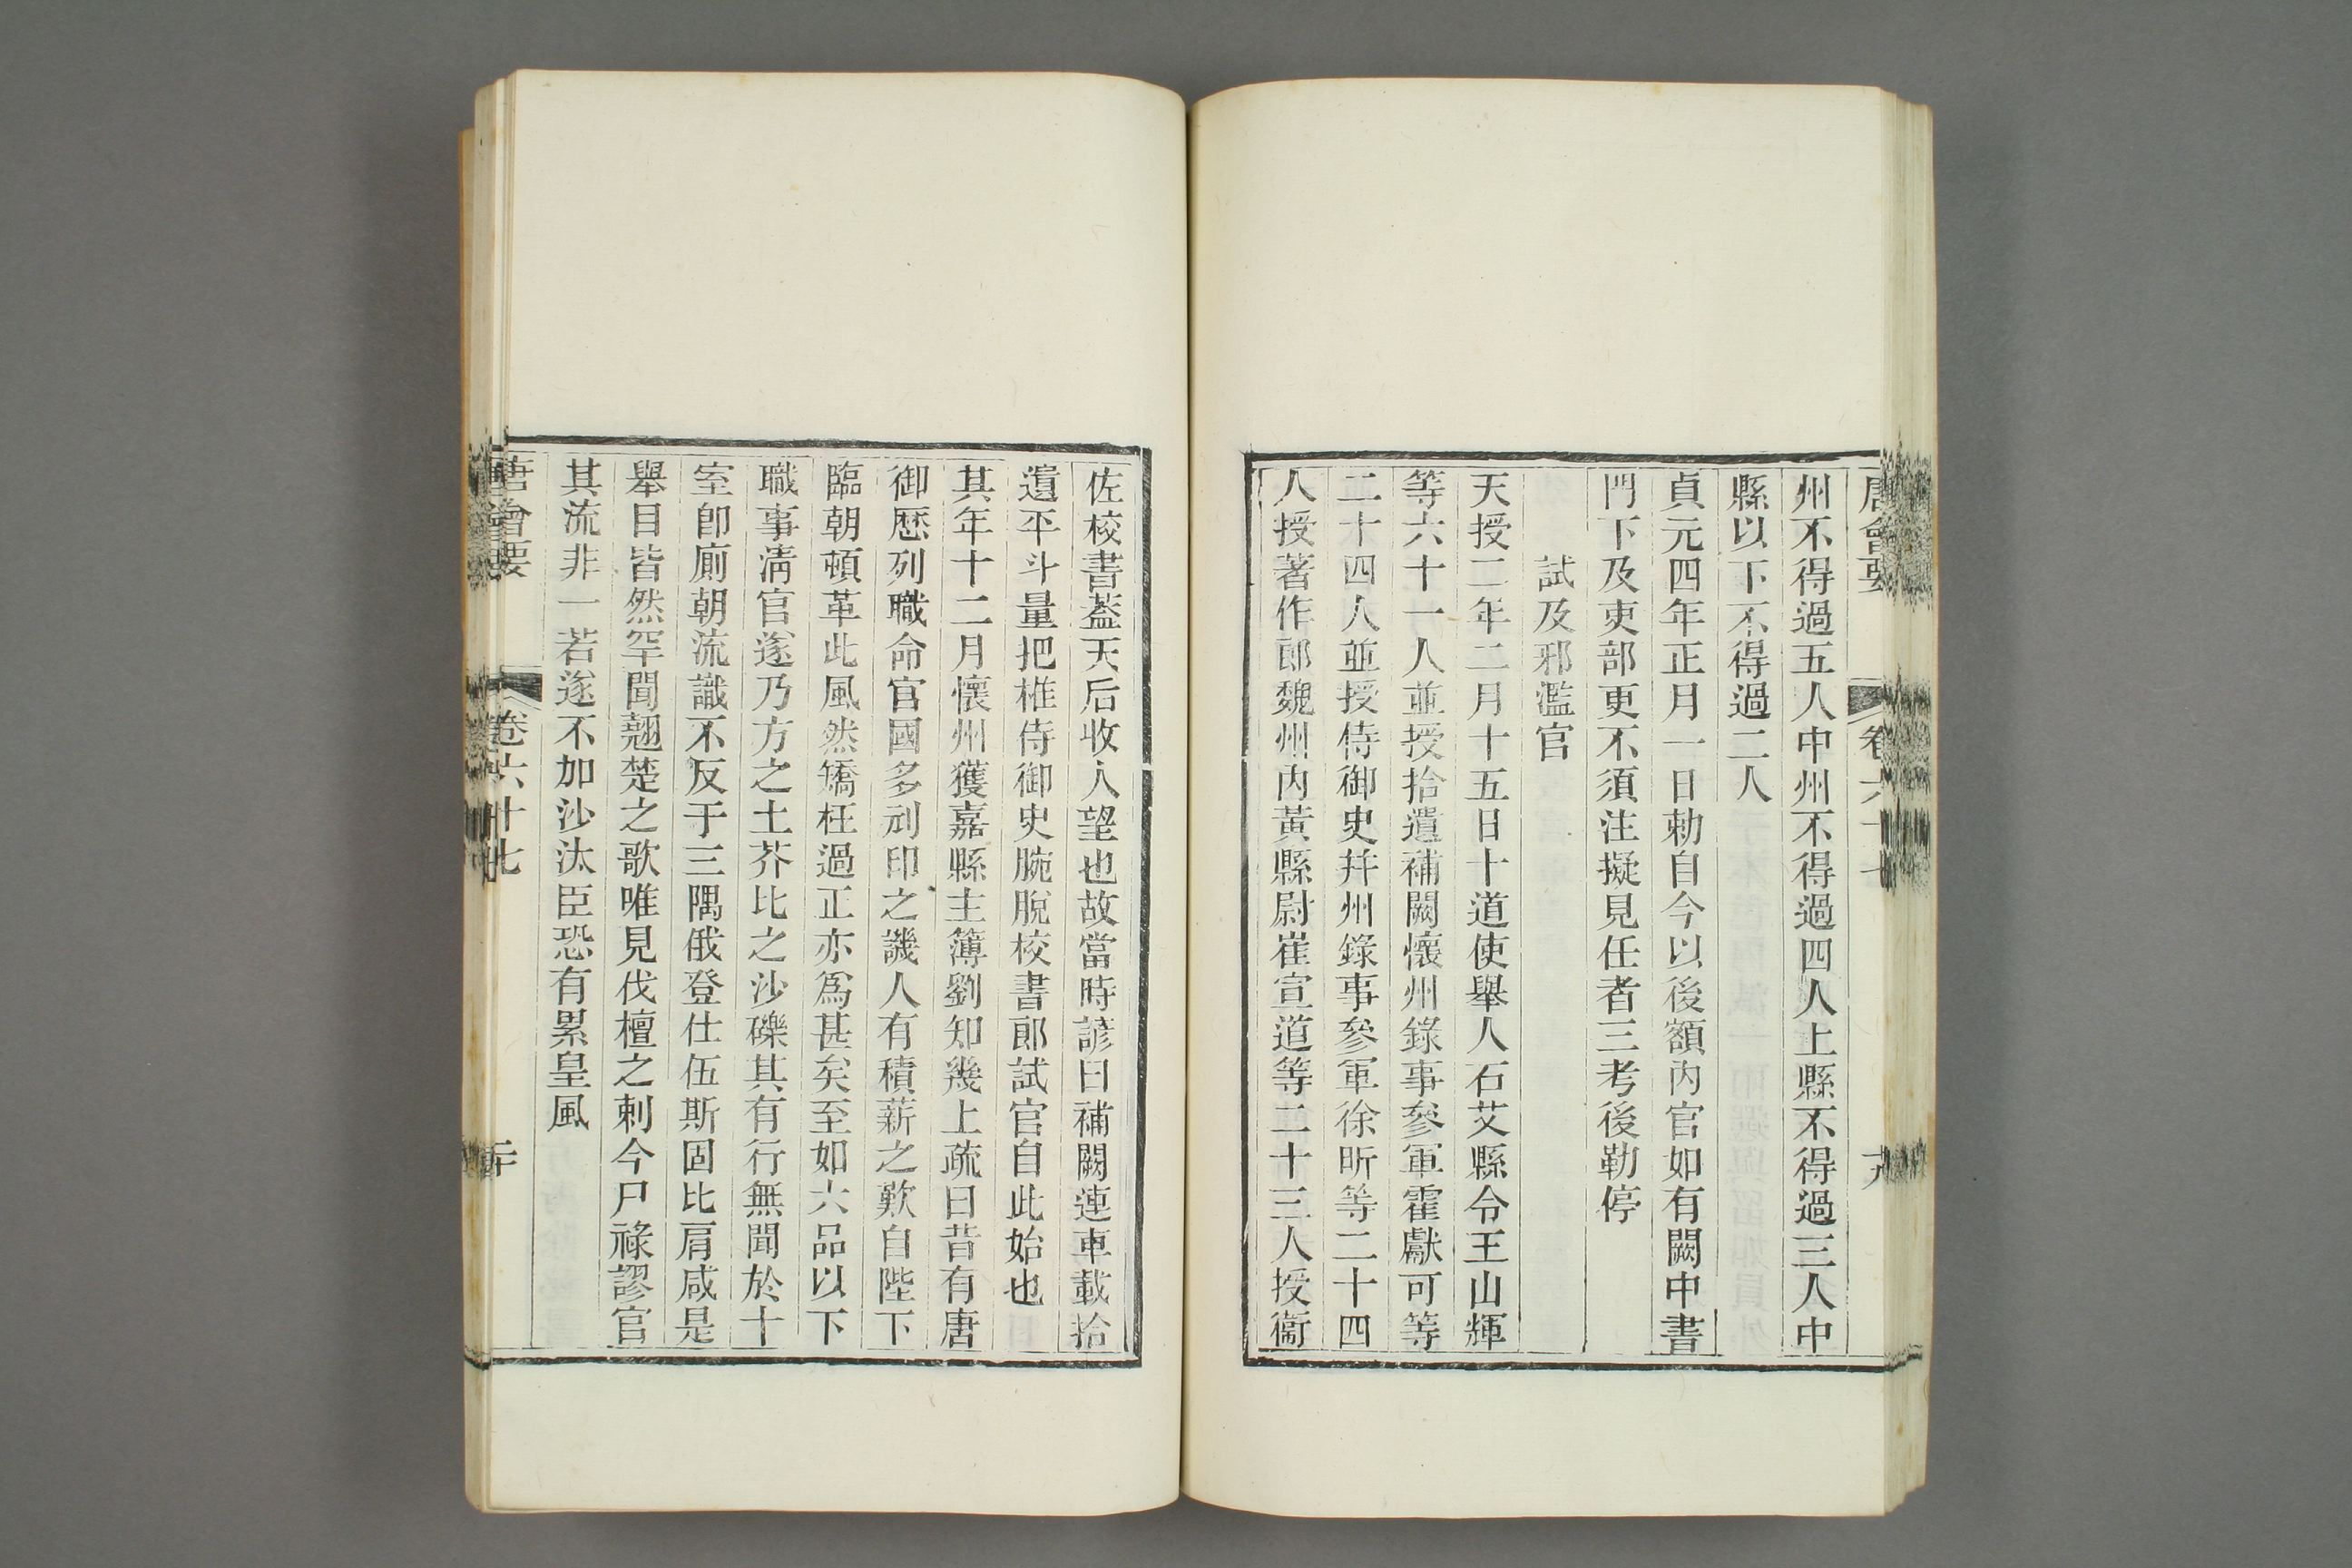 唐會要 卷六十七 十九
州不得過五人中州不得過四人上縣不得過三人中
縣以下不得過二人
貞元四年正月一日勅自今以後額內官如有闕中書
門下及吏部更不須注擬見任者三考後勒停
試及邪濫官
天授二年二月十五日十道使舉人石艾縣令王山輝
等六十一人並授拾遺補闕懷州錄事參軍霍獻可等
二十四人並授侍御史并州錄事參軍徐昕等二十四
人授著作郎魏州內黃縣尉崔宣道等二十三人授衞
佐校書蓋天后收人望也故當時諺曰補闕連車載拾
遺平斗量把椎侍御史腕脫校書郎試官自此始也
其年十二月懷州獲嘉縣主簿劉知幾上疏曰昔有唐
御歷列職命官國多刓印之譏人有積薪之歎自陛下
臨朝頓革此風然矯枉過正亦爲甚矣至如六品以下
職事清官遂乃方之土芥比之沙礫其有行無聞於十
室卽廁朝流識不反于三隅俄登仕伍斯固比肩咸是
舉目皆然罕聞翹楚之歌唯見伐檀之刺今尸祿謬官
其流非一若遂不加沙汰臣恐有累皇風
唐會要 卷六十七 二十